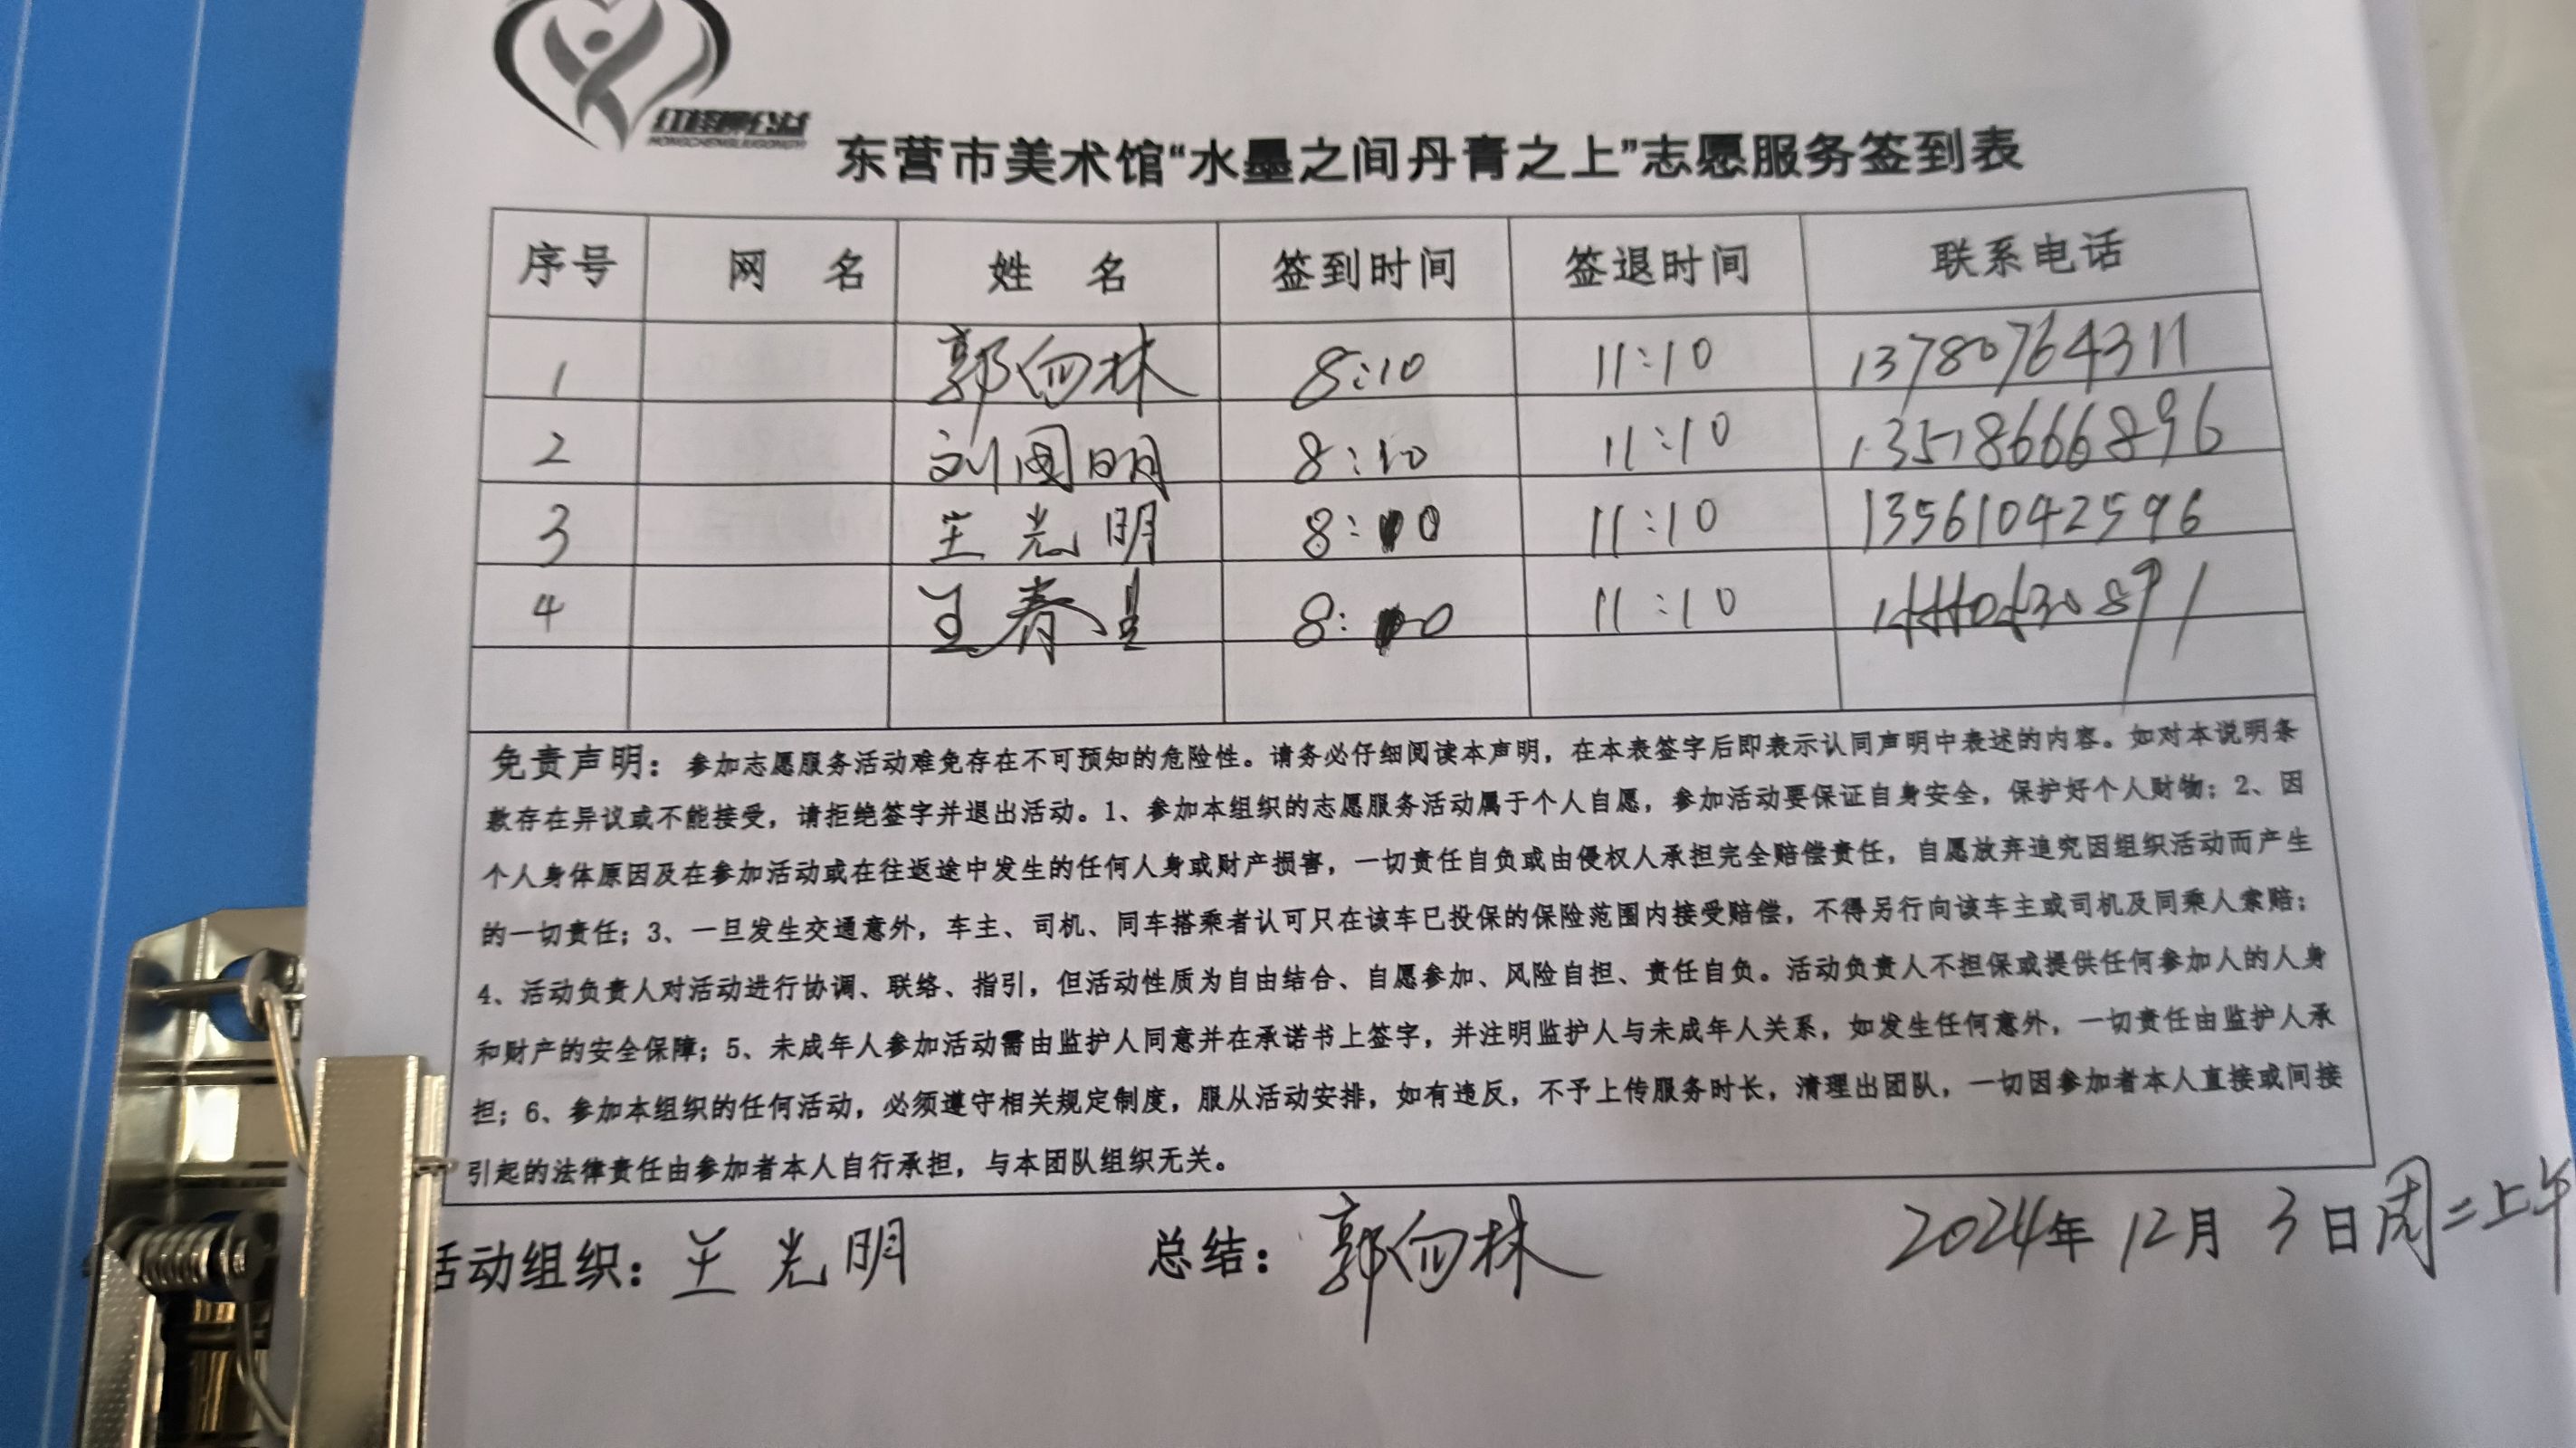 红柽柳公益
HONGCHENGLIUGONGYI
东营市美术馆“水墨之间丹青之上”志愿服务签到表
序号 网 名 姓 名 签到时间 签退时间 联系电话
1 郭向林 8:10 11:10 13780764311
2 刘国明 8:10 11:10 13518666896
3 王光明 8:00 11:10 13561042596
4 王春 8: 0 11:10
免责声明：参加志愿服务活动难免存在不可预知的危险性。请务必仔细阅读本声明，在本表签字后即表示认同声明中表述的内容。如对本说明条
款存在异议或不能接受，请拒绝签字并退出活动。1、参加本组织的志愿服务活动属于个人自愿，参加活动要保证自身安全，保护好个人财物；2、因
个人身体原因及在参加活动或在往返途中发生的任何人身或财产损害，一切责任自负或由侵权人承担完全赔偿责任，自愿放弃追究因组织活动而产生
的一切责任；3、一旦发生交通意外，车主、司机、同车搭乘者认可只在该车已投保的保险范围内接受赔偿，不得另行向该车主或司机及同乘人索赔；
4、活动负责人对活动进行协调、联络、指引，但活动性质为自由结合、自愿参加、风险自担、责任自负。活动负责人不担保或提供任何参加人的人身
和财产的安全保障；5、未成年人参加活动需由监护人同意并在承诺书上签字，并注明监护人与未成年人关系，如发生任何意外，一切责任由监护人承
担；6、参加本组织的任何活动，必须遵守相关规定制度，服从活动安排，如有违反，不予上传服务时长，清理出团队，一切因参加者本人直接或间接
引起的法律责任由参加者本人自行承担，与本团队组织无关。
活动组织：王光明 总结：郭向林 2024年12月3日周二上午